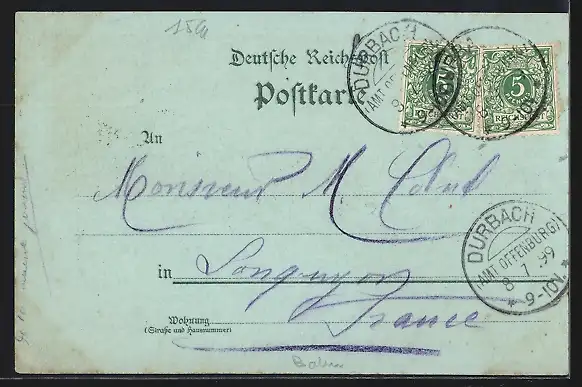 Deutsche Reichspost
Postkarte
DURBACH
(AMT OFFENBURG)
5
REICHSPOST
An
Monsieur M.
in Longuyon
France
Wohnung
(Straße und Hausnummer)
DURBACH
(AMT OFFENBURG)
8 7 99
* 9-10V. *